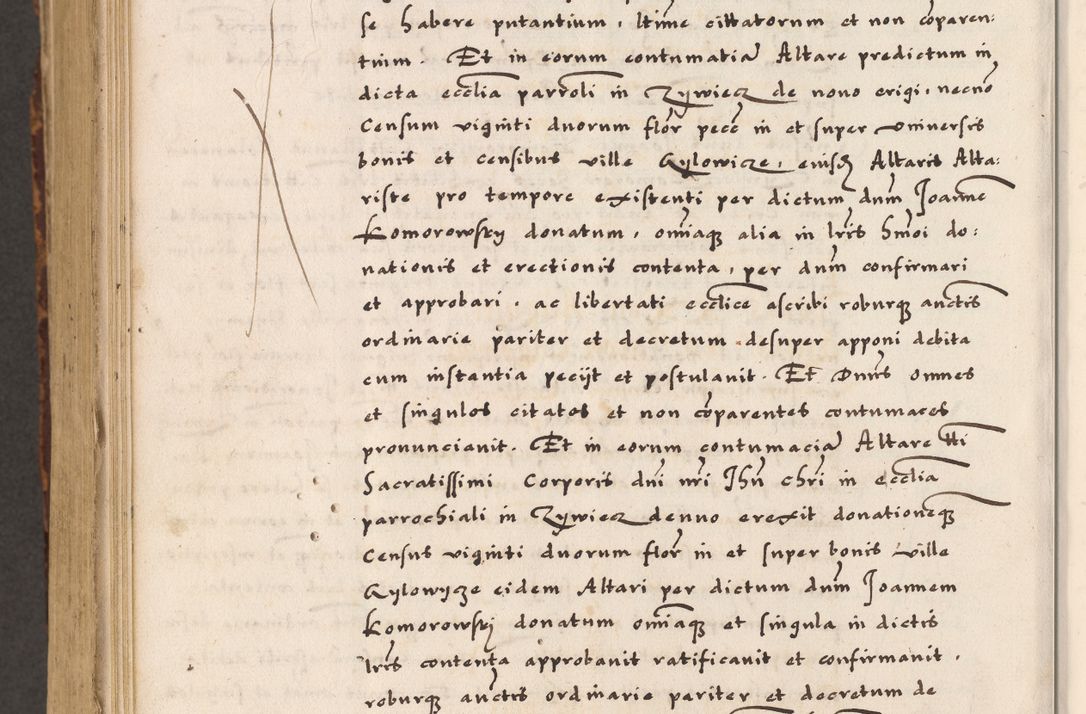 se habere putantium, ltime cittatorum et non cõparen:
tuim. Et in eorum contumatia Altare predictum in
dicta ecclia parroli in Zywiecz de nono erigi, necnõ
Censum viginti duorum flor pecc in et super vniuersis
bonis et censibus ville Gylowicze, eiusq Altaris Alta:
riste pro tempore existenti per dictum dnm Joanne
Komorowsky donatum, omiaq alia in lris hmoi do:
nationis et erectionis contenta, per dnm confirmari
et approbari, ac libertati ecclice ascribi roburq auctis
ordinarie pariter et decretum desuper apponi debita
cum instantia pecijt et postulauit. Et Dnus omnes
et singulos citatos et non cõparentes contumaces
pronuncianit. Et in eorum contumacia Altare tti
Sacratissimi Corporis dni nri Jhu chri in ecclia
parrochiali in Zywiecz denuo erexit donationeq
Census viginti duorum flor in et super bonis ville
Gylowycze eidem Altari per dictum dnm Joannem
Komorowski donatum omiaq et singula in dictis
lris contenta approbauit ratificauit et confirmauit.
roburq auctis ordinarie pariter et decretum de